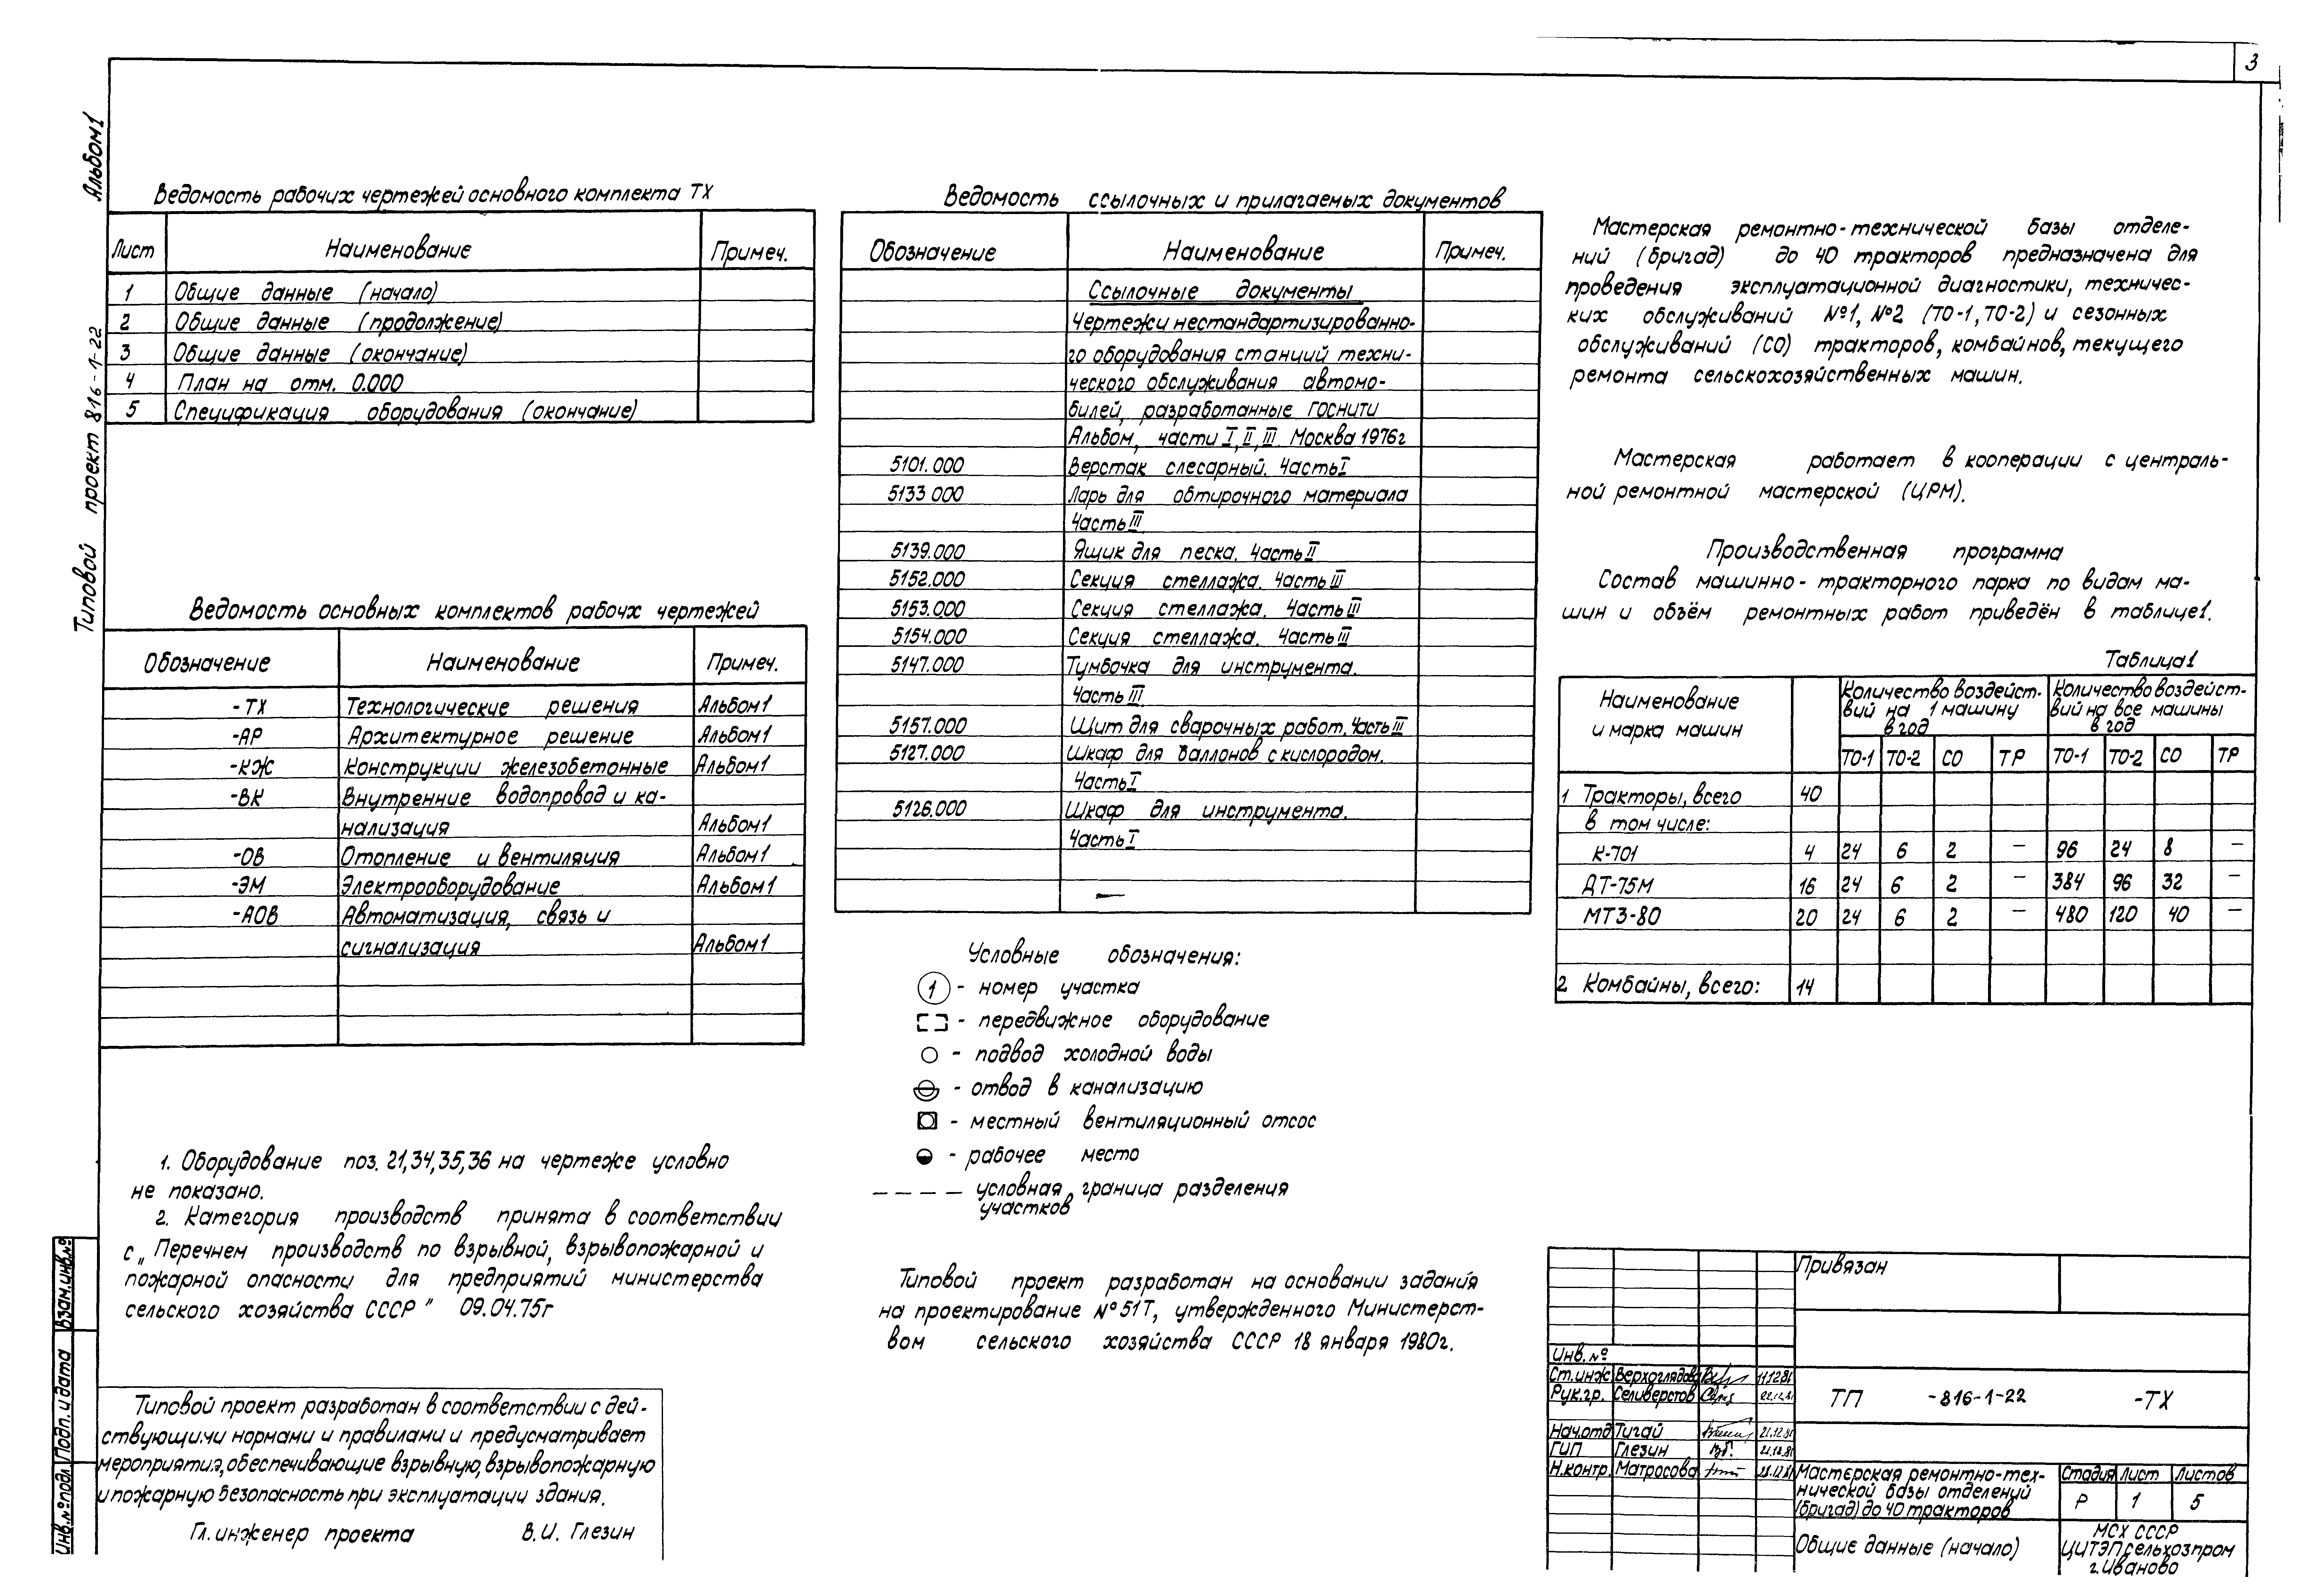 3
Альбом 1
Типовой проект 816-1-22
Ведомость рабочих чертежей основного комплекта ТХ
Лист Наименование Примеч.
1 Общие данные (начало)
2 Общие данные (продолжение)
3 Общие данные (окончание)
4 План на отм. 0.000
5 Спецификация оборудования (окончание)
Ведомость основных комплектов рабочх чертежей
Обозначение Наименование Примеч.
-ТХ Технологические решения Альбом 1
-АР Архитектурное решение Альбом 1
-КЖ Конструкции железобетонные Альбом 1
-ВК Внутренние водопровод и ка-
нализация Альбом 1
-ОВ Отопление и вентиляция Альбом 1
-ЭМ Электрооборудование Альбом 1
-АОВ Автоматизация, связь и
сигнализация Альбом 1
1. Оборудование поз. 21,34,35,36 на чертеже условно
не показано.
2. Категория производств принята в соответствии
с „Перечнем производств по взрывной, взрывопожарной и
пожарной опасности для предприятий министерства
сельского хозяйства СССР" 09.04.75г
Типовой проект разработан в соответствии с дей-
ствующими нормами и правилами и предусматривает
мероприятия, обеспечивающие взрывную, взрывопожарную
и пожарную безопасность при эксплуатации здания.
Гл. инженер проекта В.И. Глезин
Взам.инв.№
Подп. и дата
Инв.№ подл
Ведомость ссылочных и прилагаемых документов
Обозначение Наименование Примеч.
Ссылочные документы
Чертежи нестандартизированно-
го оборудования станций техни-
ческого обслуживания автомо-
билей, разработанные ГОСНИТИ
Альбом, части I, II, III. Москва 1976г
5101.000 Верстак слесарный. Часть I
5133 000 Ларь для обтирочного материала
Часть III
5139.000 Ящик для песка. Часть II
5152.000 Секция стеллажа. Часть III
5153.000 Секция стеллажа. Часть III
5154.000 Секция стеллажа. Часть III
5147.000 Тумбочка для инструмента.
Часть III
5157.000 Щит для сварочных работ. Часть III
5127.000 Шкаф для баллонов с кислородом.
Часть I
5126.000 Шкаф для инструмента.
Часть I
Условные обозначения:
1 - номер участка
- передвижное оборудование
- подвод холодной воды
- отвод в канализацию
- местный вентиляционный отсос
- рабочее место
- условная граница разделения
участков
Типовой проект разработан на основании задания
на проектирование №51Т, утвержденного Министерст-
вом сельского хозяйства СССР 18 января 1980г.
Мастерская ремонтно-технической базы отделе-
ний (бригад) до 40 тракторов предназначена для
проведения эксплуатационной диагностики, техничес-
ких обслуживаний №1, №2 (ТО-1, ТО-2) и сезонных
обслуживаний (СО) тракторов, комбайнов, текущего
ремонта сельскохозяйственных машин.
Мастерская работает в кооперации с централь-
ной ремонтной мастерской (ЦРМ).
Производственная программа
Состав машинно-тракторного парка по видам ма-
шин и объём ремонтных работ приведён в таблице 1.
Таблица 1
Наименование и марка машин
Количество воздейст-
вий на 1 машину
в год
Количество воздейст-
вий на все машины
в год
ТО-1 ТО-2 СО ТР ТО-1 ТО-2 СО ТР
1 Тракторы, всего 40
в том числе:
К-701 4 24 6 2 — 96 24 8 —
ДТ-75М 16 24 6 2 — 384 96 32 —
МТЗ-80 20 24 6 2 — 480 120 40 —
2 Комбайны, всего: 14
Привязан
Инв. №
Ст.инж Верхоглядова 11.12.81
Рук.гр. Селиверстов 22.12.81
Нач.отд Тигай 21.12.81
ГИП Глезин 21.12.81
Н.контр. Матросова 28.12.81
ТП -816-1-22 -ТХ
Мастерская ремонтно-тех-
нической базы отделений
(бригад) до 40 тракторов
Стадия Лист Листов
Р 1 5
Общие данные (начало)
МСХ СССР
ЦИТЭПсельхозпром
г.Иваново